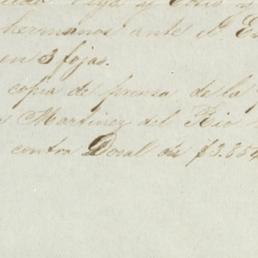 hermanos ante el
en 3 fojas.
copia de prensa de la
Martinez del Rio
contra Doval de $3.854